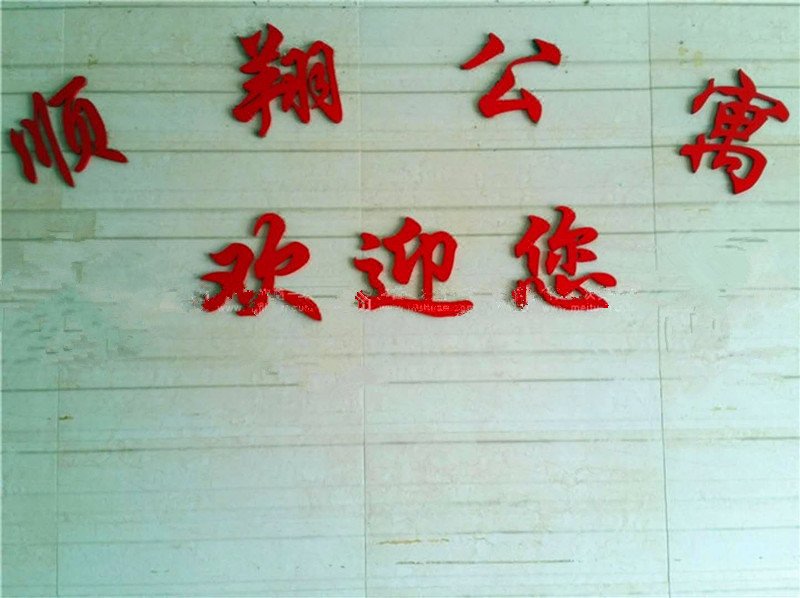 顺翔公寓
欢迎您